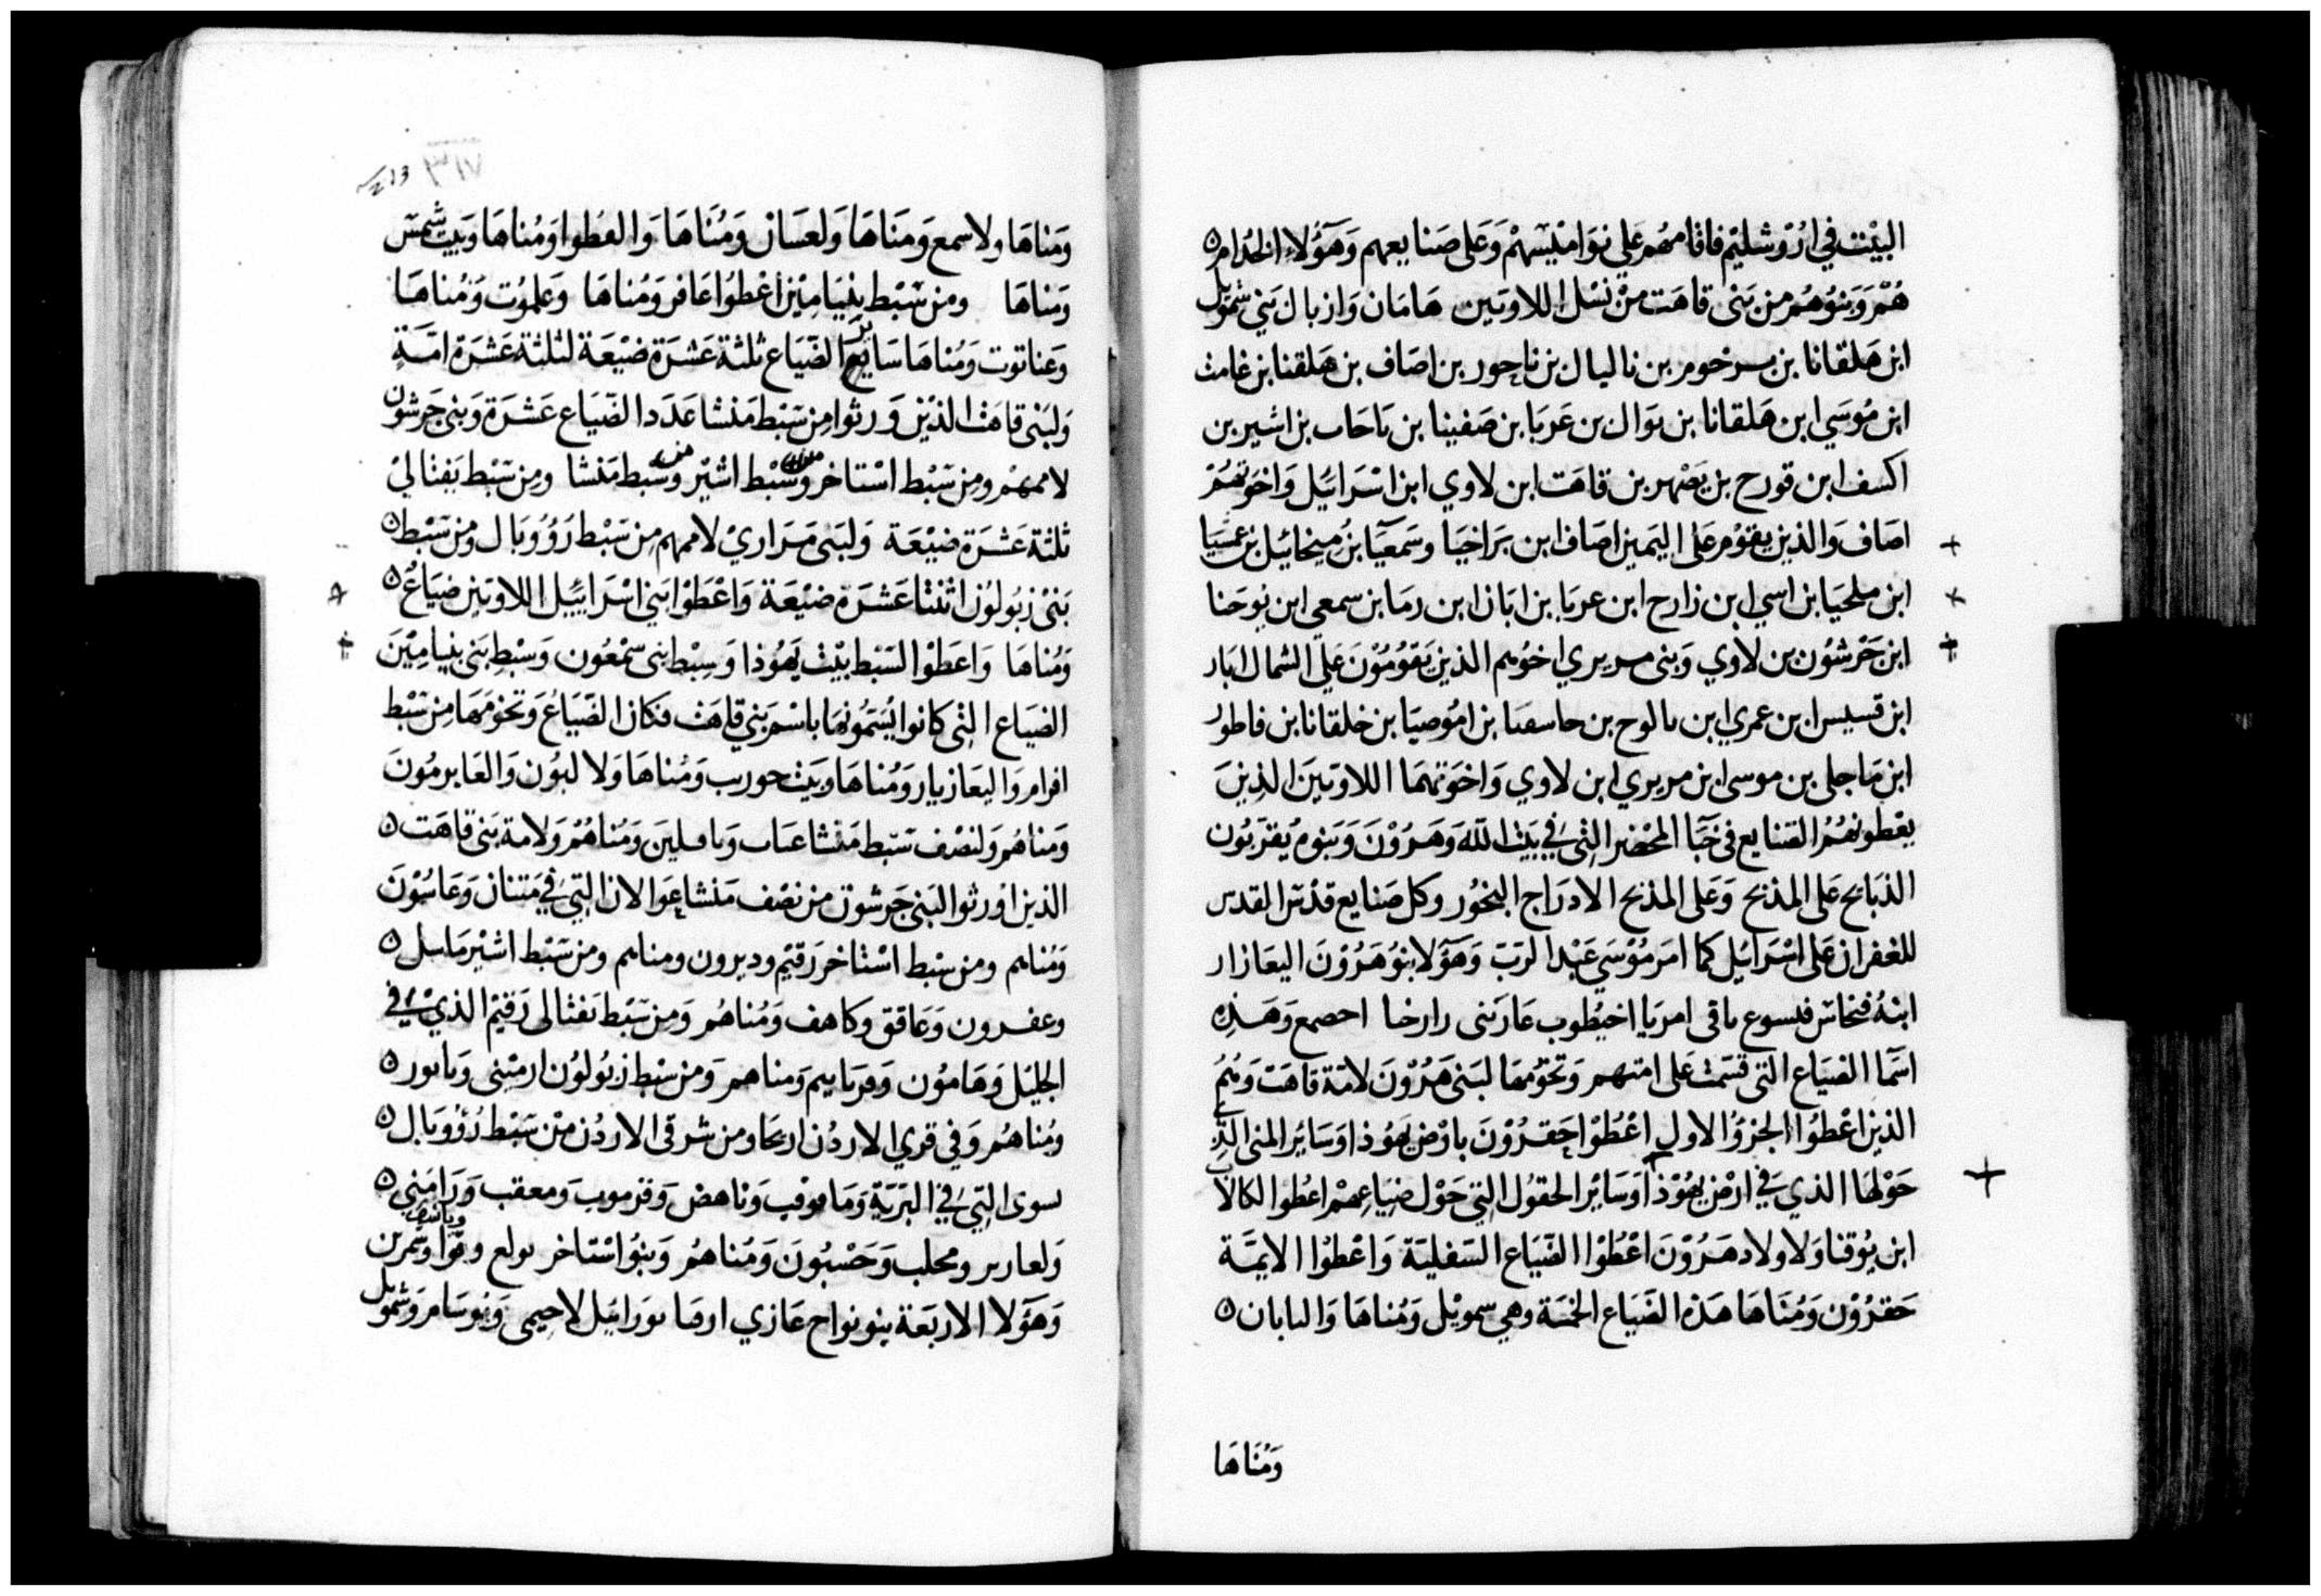 البيت في اورشليم فاقامهم علي نواميسهم وعلى صنايعهم وهؤلاء الخدام
هم وبنوهم من بني قاهت من نسل اللاويين هامان وازبال بني شمويل
ابن هلقانا بن يرخوم بن ناليال بن ناحور بن اصاف بن هلقنا بن غامث
ابن موسي ابن هلقانا بن يوال بن عربا بن صفينا بن باحاب بن اشير بن
اكسف ابن قورح بن يصهر بن قاهت ابن لاوي ابن اسرائيل واخوتهم
اصاف والذين يقوم على اليمين اصاف ابن براخيا وسمعيا بن ميخائيل بن عشيا
ابن ملحيا بن اسي ابن زارح ابن عربا بن ابان ابن رما بن سمعي ابن يوحنا
ابن جرشون بن لاوي وبني مريري اخوهم الذين يقومون علي الشمال ابار
ابن قسيس ابن عمري ابن مالوح بن بن اموصيا بن خلقانا بن فاطور
ابن ماجلي بن موسى ابن مريري ابن لاوي واخوتهما اللاويين الذين
يعطونهم الصنايع في خبا المحضر التي في بيت الله وهرون وبنوه يقربون
الذبائح على المذبح وعلى المذبح الادراج البخور وكل صنايع قدس القدس
للغفران على اسرائيل كما امر موسي عبد الرب وهؤلا بنو هرون اليعازار
ابنه فنحاس فيسوع باقي امريا اخيطوب عارنى وهذه
اسما الضياع التي قسمت على امتهم وتخومها لبني هرون لامة قاهت وهم
الذين اعطوا الجزؤ الاول اعطوا حقرون بارض يهوذا وساير المنى التي
حولها الذي في ارض يهوذا وساير الحقول التي حول ضياعهم اعطوا لكالاب
ابن يوقنا ولاولاد هرون اعطوا الضياع السفلية واعطوا الايمة
حقرون ومناها هذه الضياع الخمسة وهي سمويل ومناها والبابان
ومناها
ومناها ولاسمع ومناها ولعسان ومناها والعطوا ومناها وبيت شمس
ومناها ومن سبط بنيامين اعطوا عافر ومناها وعلموت ومناها
وعناتوت ومناها ساير الضياع ثلثة عشرة ضيعة لثلثة عشرة امة
ولبني قاهث الذين ورثوا من سبط منشا عدد الضياع عشرة وبني جرشون
لاممهم ومن سبط استاخر وسبط اشير وسبط منشا ومن سبط يفثالي
ثلثة عشرة ضيعة ولبني مراري لاممهم من سبط رؤوبال ومن سبط
بني زبولون اثنتا عشرة ضيعة واعطوا بني اسرائيل اللاويين ضياع
ومناها واعطوا السبط بيت يهوذا وسبط بني سمعون وسبط بني بنيامين
الضياع التي كانوا يسمونها باسم بني قاهث فكان الضياع وتخومها من سبط
افرام واليعازبار ومناها وبيت حورب ومناها ولالبون والعابرمون
ومناهم ولنصف سبط منشا ومناهم ولامة بني قاهت
الذين اورثوا لبني جرشون من نصف منشا عوالان التي في متنان وعاسون
ومناهم ومن سبط استاخر رقيم وديرون ومناهم ومن سبط اشير ماسل
وعفرون وعاقق وكاهف ومناهم ومن سبط نفثالي رقيم الذي في
الجليل وهامون وقرياييم ومناهم ومن سبط زبولون ارمينى وبابور
ومناهم وفي قري الاردن اريحا ومن شرقي الاردن من سبط رؤوبال
لسوى التي في البرية وناهض وقزموب ومعقب ورامني
ومحلب وحسبون ومناهم وبنو استاخر تولع وفوا وياشف وشمرين
وهؤلا الاربعة بنو نواح عازي ارفا يورائيل لاحيمى وبوسامر وشمويل